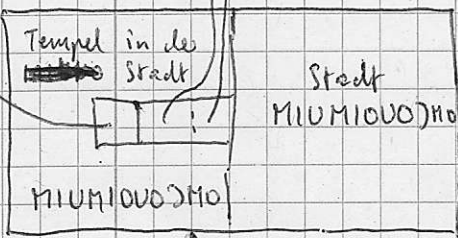 Tempel in de
Stadt
Stadt
MIUMIOUO)MO
MIUMIOUO)MO